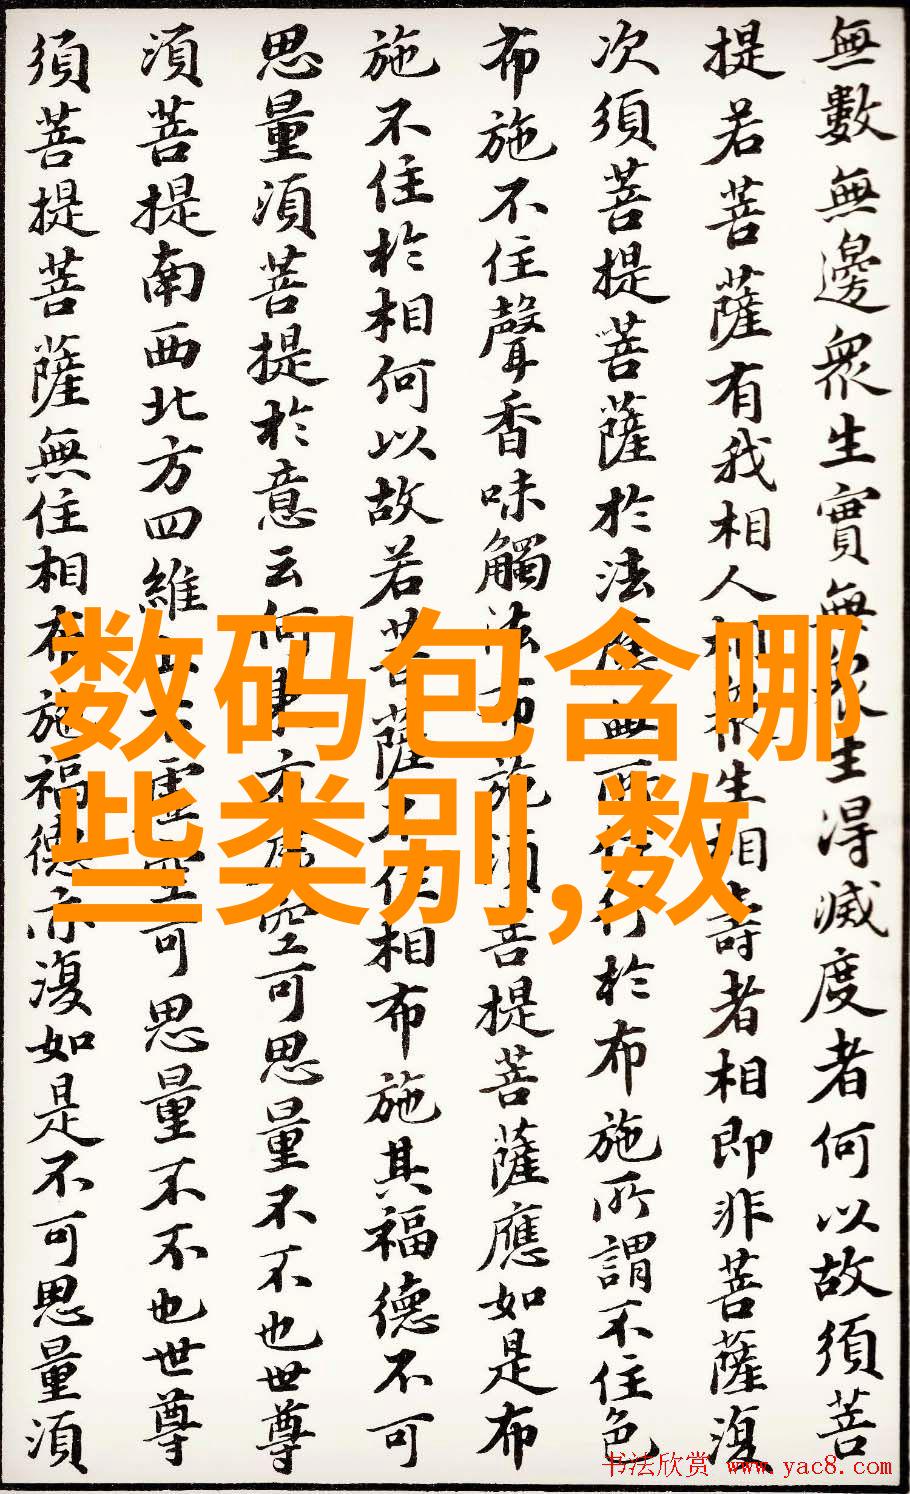 無數無邊眾生實無眾生得滅度者何以故須菩
提若菩薩有我相人相眾生相壽者相即非菩薩復
次須菩提菩薩於法應無所住行於布施所謂不住色
布施不住聲香味觸法布施須菩提菩薩應如是布
施不住於相何以故若菩薩不住相布施其福德不可
思量須菩提於意云何東方虛空可思量不不也世尊
須菩提南西北方四維上下虛空可思量不不也世尊
須菩提菩薩無住相布施福德亦復如是不可思量須
数码包含哪
些类别,数
书法欣赏 www.yac8.com